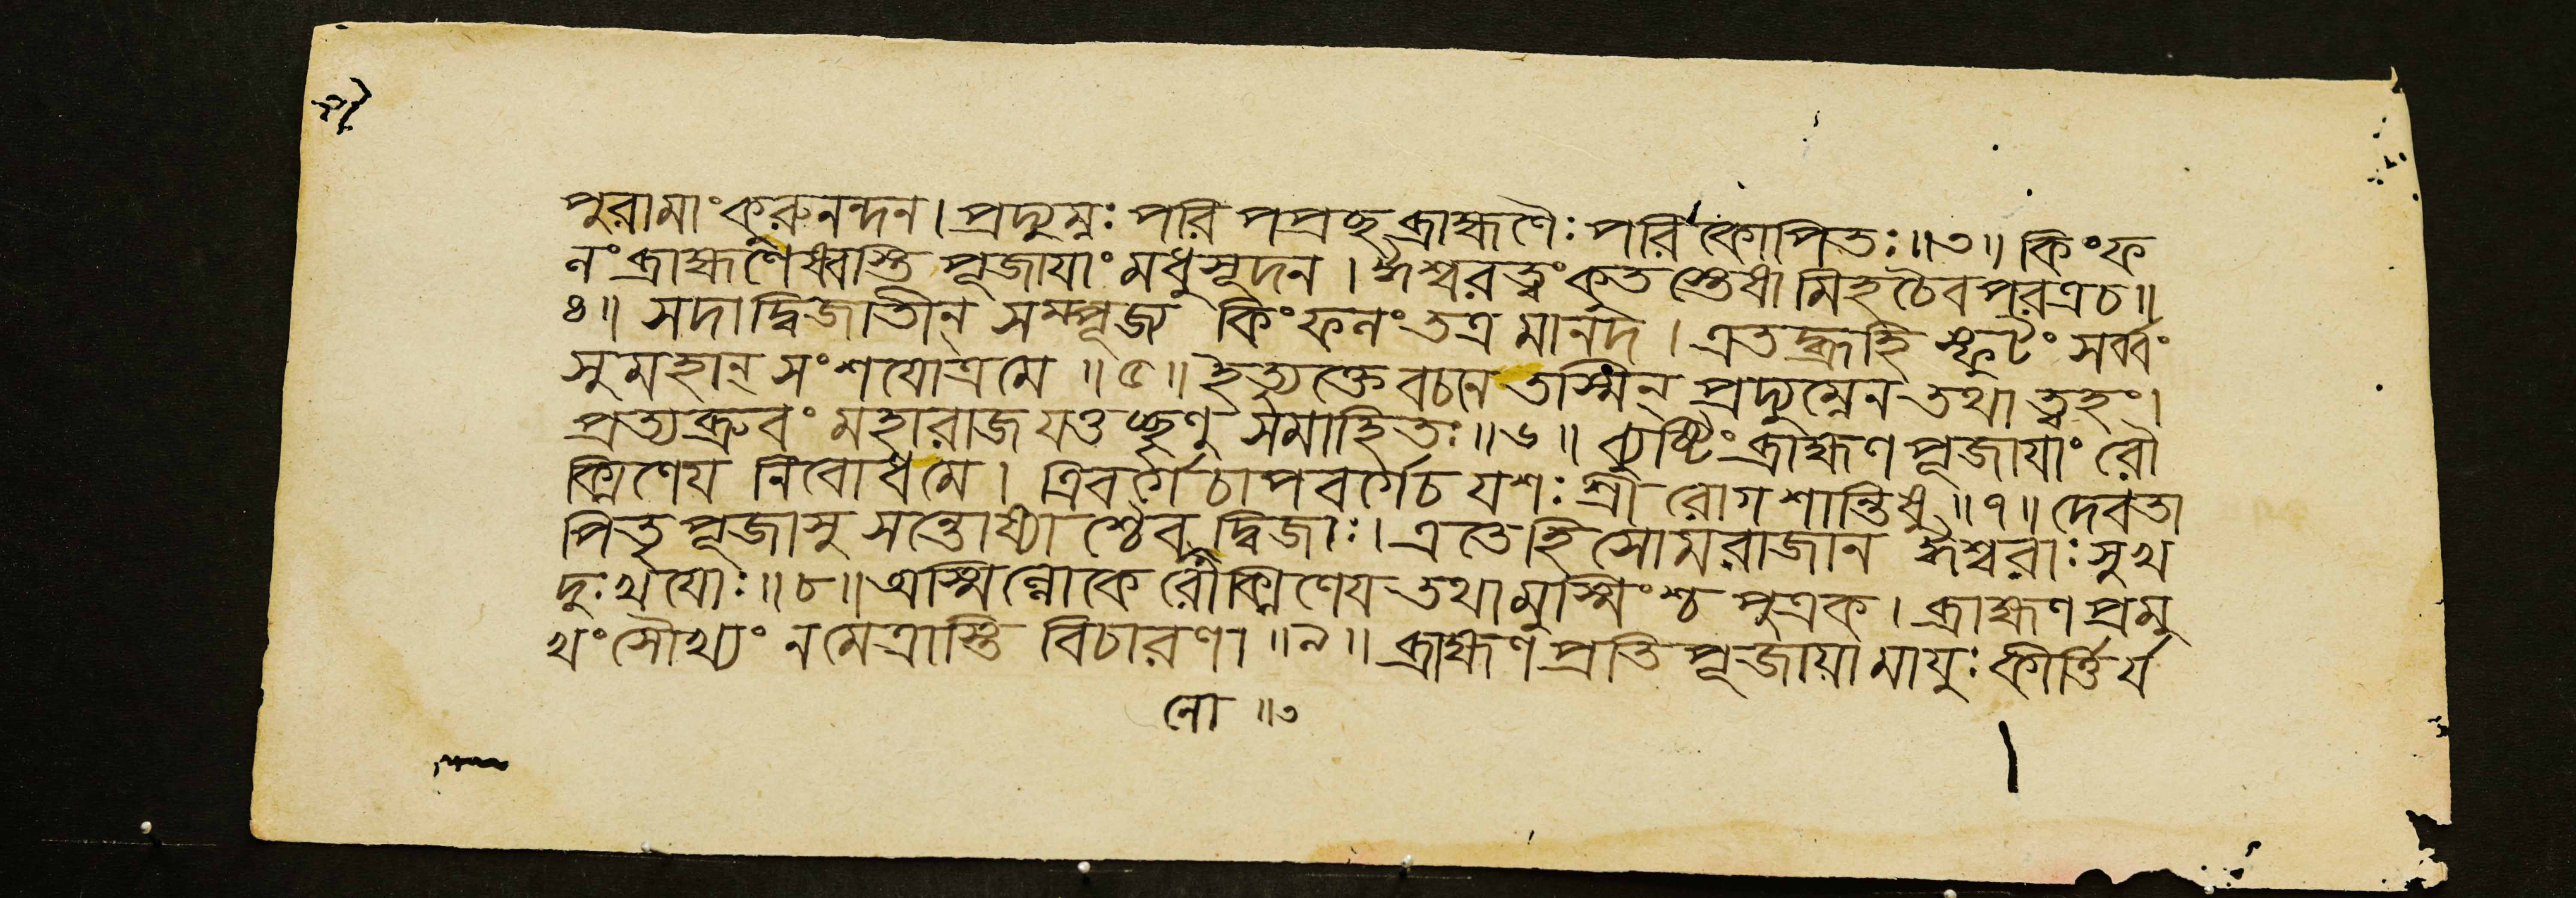 পুরামাং কুরুনন্দন। প্রদ্যুম্নঃ পরিপপ্রচ্ছ ব্রাহ্মণৈঃ পরিকোপিতঃ॥৩॥ কিং ফ
লং ব্রাহ্মণেষ্বস্তি পূজায়াং মধুসূদন। ঈশ্বরত্বং কুতস্তেষামিহচৈব পরত্রচ॥
৪॥ সদা দ্বিজাতীন্ সম্পূজ্য কিং ফলং তত্র মানদ। এতদ্ব্রূহি স্ফুটং সর্ব্বং
সুমহান্ সংশয়োত্রমে॥৫॥ ইত্যুক্তে বচনে তস্মিন্ প্রদ্যুম্নেন তথা ত্বহং।
প্রত্যব্রুবং মহারাজ যত্তচ্ছৃণু সমাহিতঃ॥৬॥ ব্যুষ্টিং ব্রাহ্মণপূজায়াং রৌ
ক্মিণেয় নিবোধমে। ত্রিবর্গে চাপবর্গেচ যশঃ শ্রী রোগশান্তিষু॥৭॥ দেবতা
পিতৃপূজাসু সন্তোষ্যাশ্চৈব দ্বিজাঃ। এতেহি সোমরাজান ঈশ্বরাঃ সুখ
দুঃখয়োঃ॥৮॥ অস্মিল্লোকে রৌক্মিণেয় তথামুস্মিংশ্চ পুত্রক। ব্রাহ্মণপ্রমু
খং সৌখ্যং নমেত্রাস্তি বিচারণা॥৯॥ ব্রাহ্মণপ্রতিপূজায়ামায়ুঃ কীর্ত্তির্য
নো॥৩